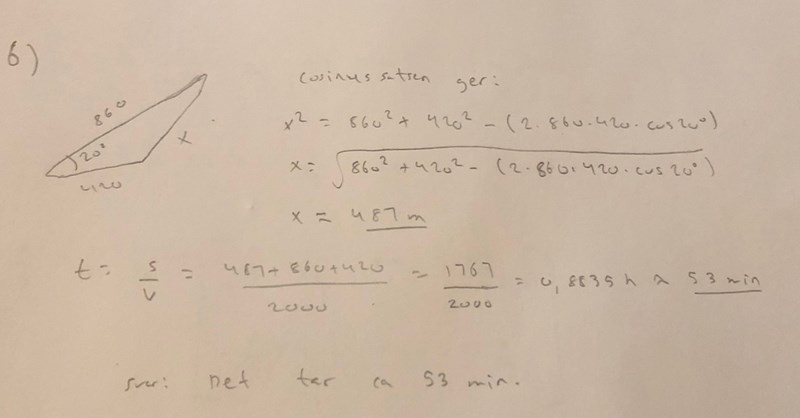 6)
860
20°
x
420
Cosinussatsen ger:
x² = 860² + 420² - (2·860·420·cos20°)
x = √860² + 420² - (2·860·420·cos20°)
x = 487 m
t = s/v = 487+860+420/2000 = 1767/2000 = 0,8835 h ≈ 53 min
Svar: Det tar ca 53 min.